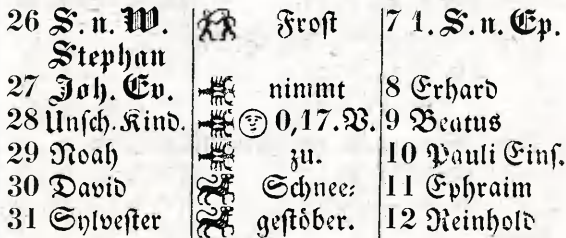 26 S. n. W. Frost 7 1. S. n. Ep.
Stephan
27 Joh. Ev. nimmt 8 Erhard
28 Unsch. Kind. 0,17. V. 9 Beatus
29 Noah zu. 10 Pauli Eins.
30 David Schnee- 11 Ephraim
31 Sylvester gestöber. 12 Reinhold